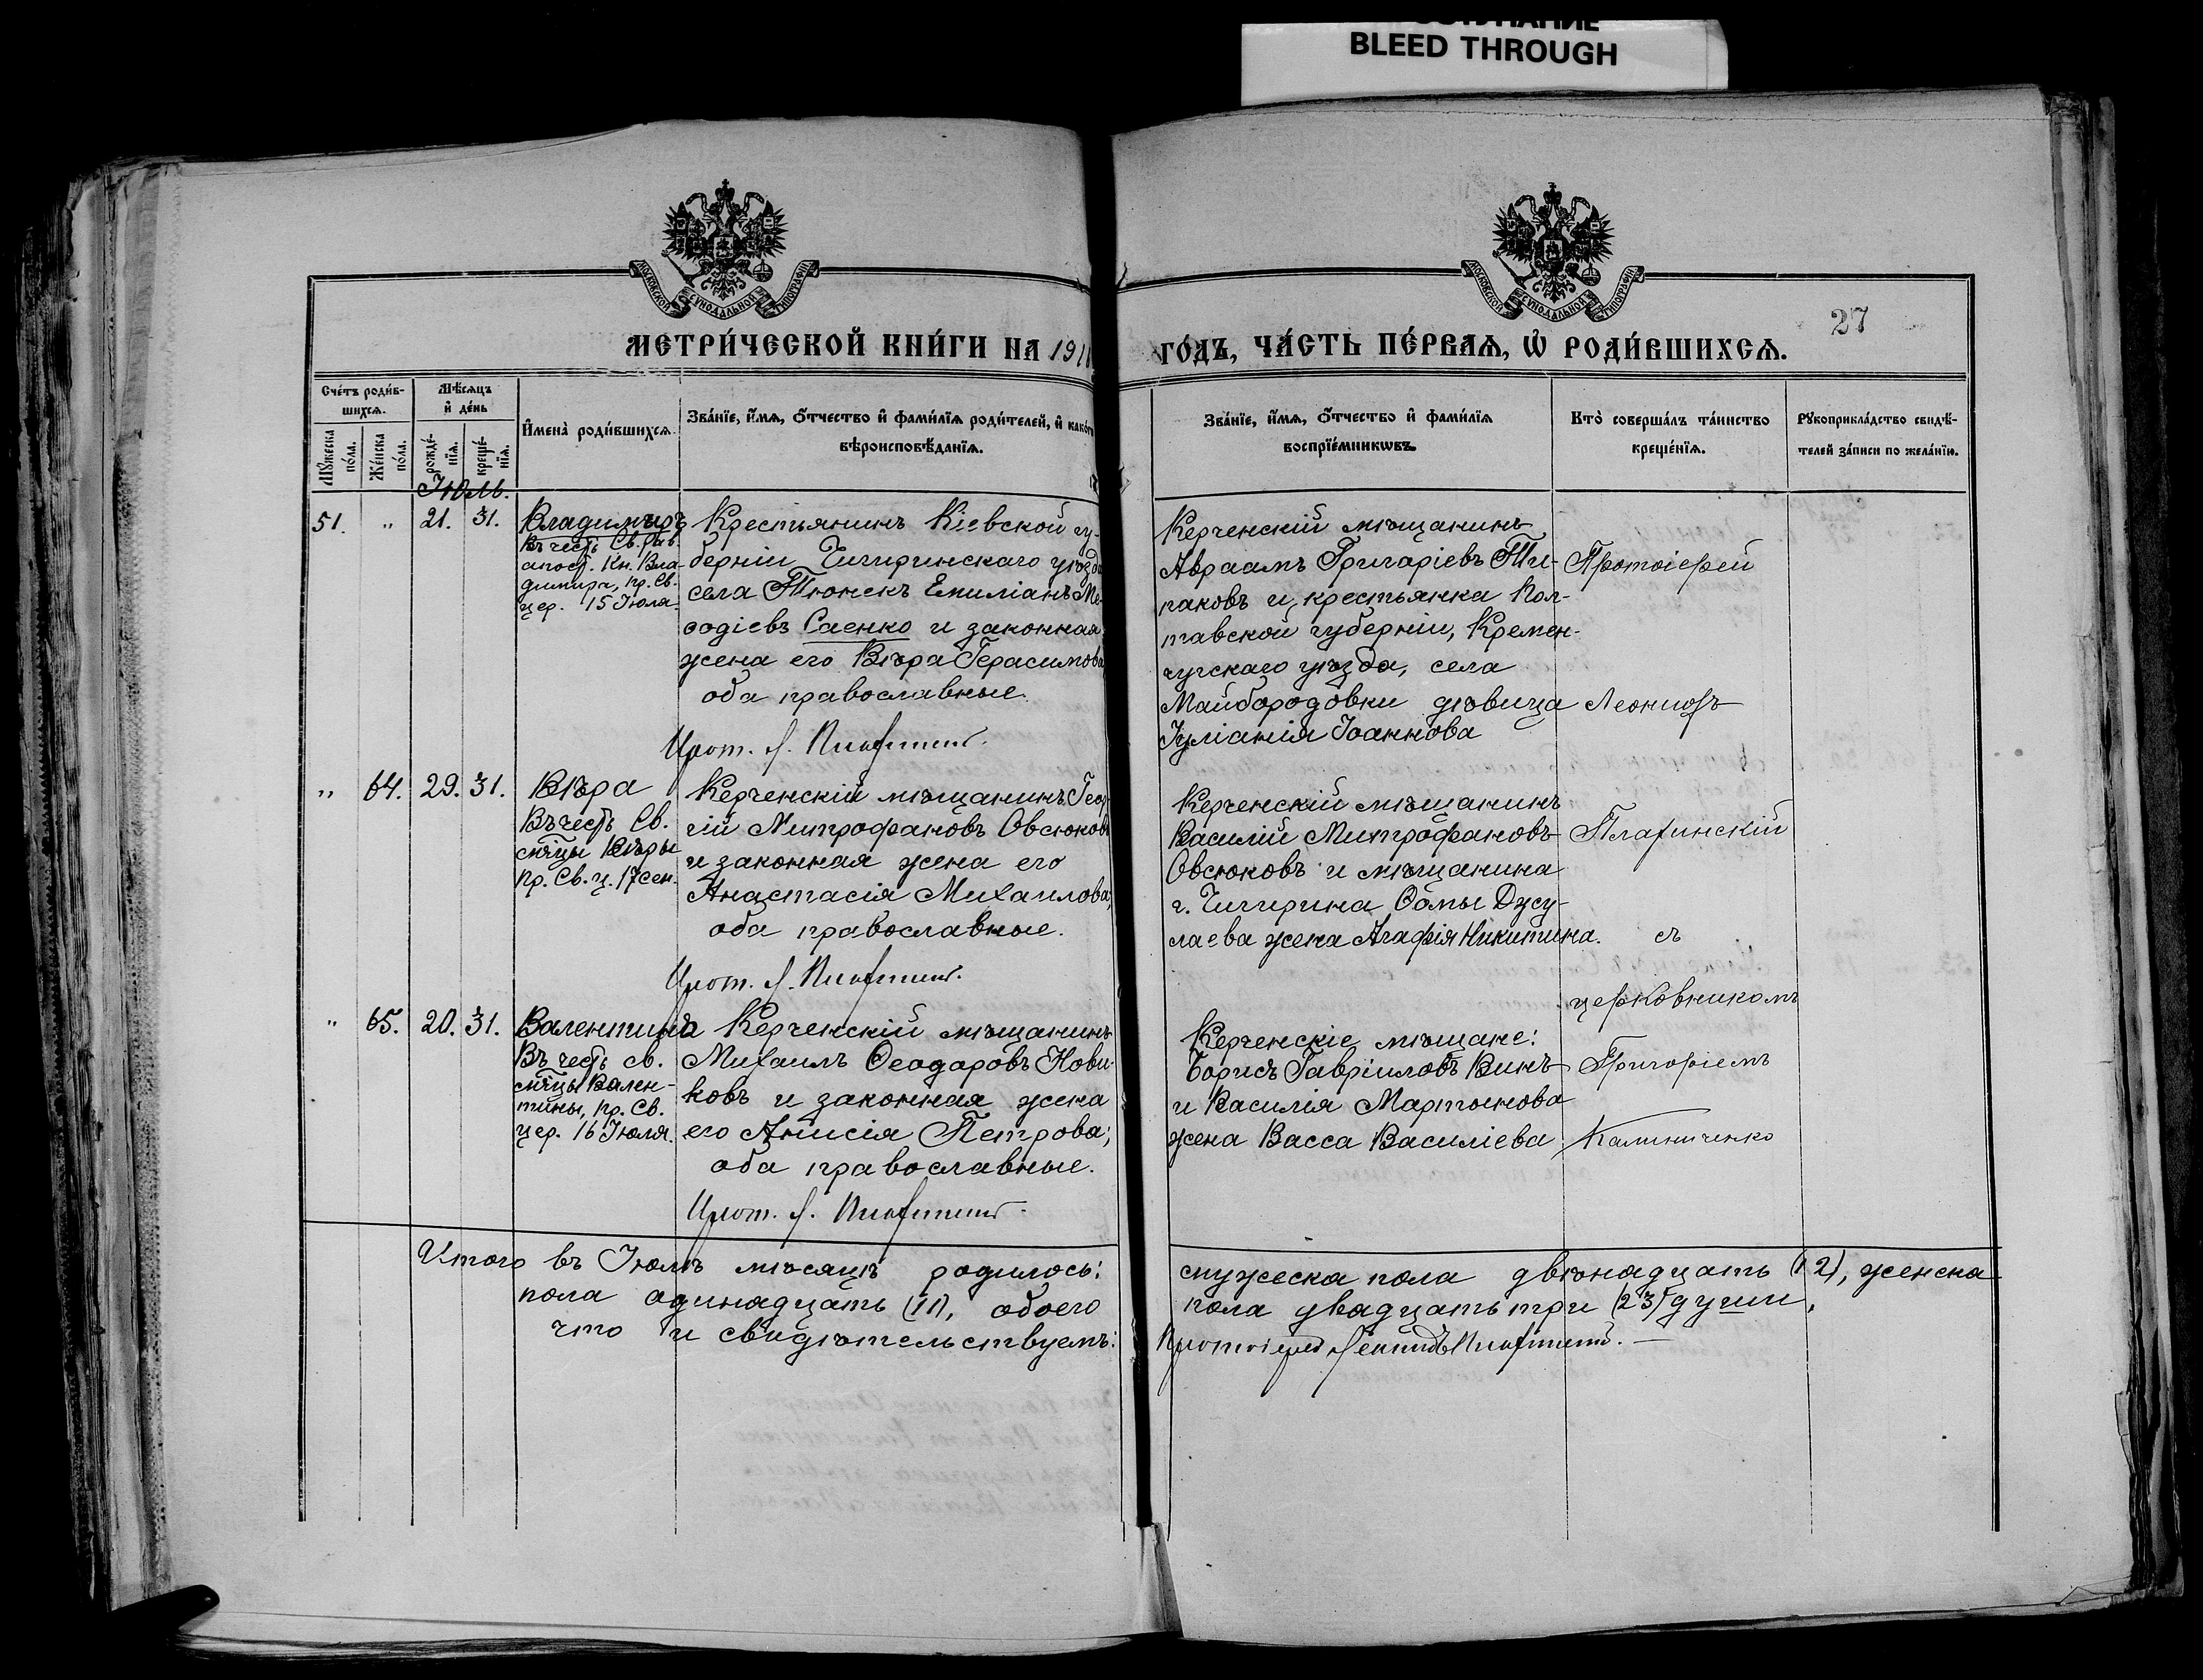 BLEED THROUGH
МОСКОВСКОЙ СѴНОДАЛЬНОЙ ТИПОГРАФІИ
МОСКОВСКОЙ СѴНОДАЛЬНОЙ ТИПОГРАФІИ
27
МЕТРИ́ЧЕСКОЙ КНИ́ГИ НА 191
ГО́ДЪ, ЧА́СТЬ ПЕ́РВАѦ, Ѡ҆ РОДИ́ВШИХСѦ.
Сче́тъ роди́в-
шихсѧ.
Мѣ́сѧцъ
и҆ де́нь
И҆мена̀ роди́вшихсѧ.
Зва́нїе, и҆́мѧ, ѻ҆́тчество и҆ фами́лїѧ роди́телей, и҆ како́гѡ
вѣроисповѣ́данїѧ.
Зва́нїе, и҆́мѧ, ѻ҆́тчество и҆ фами́лїѧ
воспрїе́мникѡвъ.
Кто̀ соверша́лъ та́инство
креще́нїѧ.
Рꙋкоприкла́дство свидѣ́-
телей за́писи по жела́нїю.
Мꙋ́жеска
по́ла.
Же́нска
по́ла.
рожде́-
нїѧ.
креще́-
нїѧ.
Іюль.
51. " 21. 31.
Владиміръ
Въ честь Св. рав.
апост. Кн. Вла-
димира, пр. Св.
цер. 15 Іюля.
Крестьянинъ Кіевской гу-
берніи Чигиринскаго уѣзда
села Тюнекъ Емиліанъ Ме-
ѳодіевъ Саенко и законная
жена его Вѣра Герасимова
оба православные.
Прот. Л.
Керченскій мѣщанинъ
Авраамъ Григоріевъ Ти-
паковъ и крестьянка Пол-
тавской губерніи, Кремен-
чугскаго уѣзда, села
Майбородовки дѣвица
Іуліанія Іоаннова
Протоіерей
Леонидъ
" 64. 29. 31.
Вѣра
Въ честь Св.
мч҃цы Вѣры
пр. Св. ц. 17 сен.
Керченскій мѣщанинъ Геор-
гій Митрофановъ Овсюковъ
и законная жена его
Анастасія Михаилова;
оба православные.
Прот. Л.
Керченскій мѣщанинъ
Василій Митрофановъ
Овсюковъ и мѣщанина
г. Чигирина Ѳомы Джу-
лаева жена Агафія Никитина.
съ
церковникомъ
" 65. 20. 31.
Валентина
Въ честь св.
мч҃цы Вален-
тины, пр. Св.
цер. 16 Іюля.
Керченскій мѣщанинъ
Михаилъ Ѳеодоровъ Нови-
ковъ и законная жена
его Анисія Петрова;
оба православные.
Прот. Л.
Керченскіе мѣщане:
Борисъ Гавріиловъ Винъ
и Василія Мартынова
жена Васса Василіева
Григоріемъ
Калиниченко
Итого въ Іюлѣ мѣсяцѣ родилось:
мужеска пола двѣнадцать (12), женска
пола одинадцать (11), обоего
пола двадцать три (23) души,
что и свидѣтельствуемъ:
Протоіерей Леонидъ